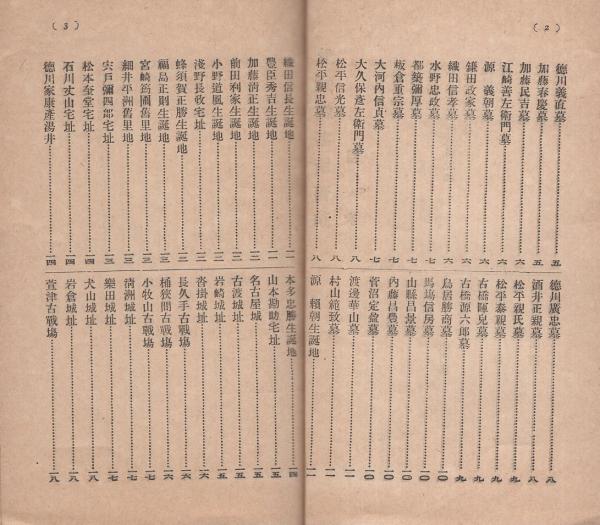 (2)
德川義直墓……五
加藤春慶墓……五
加藤民吉墓……六
江崎善左衞門墓……六
源 義朝墓……六
鎌田政家墓……六
織田信孝墓……六
水野忠政墓……六
都築彌厚墓……七
板倉重宗墓……七
大河內信貞墓……七
大久保彥左衞門墓……八
松平信光墓……八
松平親忠墓……八
德川廣忠墓……八
酒井正親墓……八
松平親氏墓……九
松平泰親墓……九
古橋暉皃墓……九
古橋源六郞墓……九
鳥居勝商墓……一〇
馬場信房墓……一〇
山縣昌景墓……一〇
內藤昌豊墓……一〇
菅沼定盈墓……一〇
渡邊華山墓……一一
村山範致墓……一一
源 賴朝生誕地……一一
(3)
織田信長生誕地……一一
豊臣秀吉生誕地……一一
加藤淸正生誕地……一二
前田利家生誕地……一二
小野道風生誕地……一二
淺野長政宅址……一二
蜂須賀正勝生誕地……一三
福島正則生誕地……一三
宮崎筠圃舊里地……一三
細井平洲舊里地……一三
宍戶彌四郞宅址……一三
松本奎堂宅址……一四
石川丈山宅址……一四
德川家康產湯井……一四
本多忠勝生誕地……一四
山本勘助宅址……一五
名古屋城……一五
古渡城址……一五
岩崎城址……一五
沓掛城址……一六
長久手古戰場……一六
桶狹間古戰場……一六
小牧山古戰場……一七
淸洲城址……一七
樂田城址……一七
犬山城址……一八
岩倉城址……一八
萱津古戰場……一八